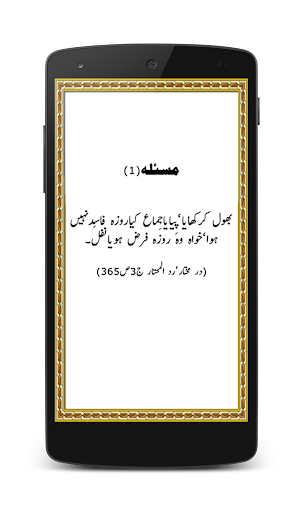 مسئلہ(1)
بھول کر کھایا‘پیایاجِماع کیاروزہ فاسِدنہیں
ہوا‘خواہ وہ روزہ فرض ہویانفل۔
(در مختار‘رد المحتار ج3ص365)